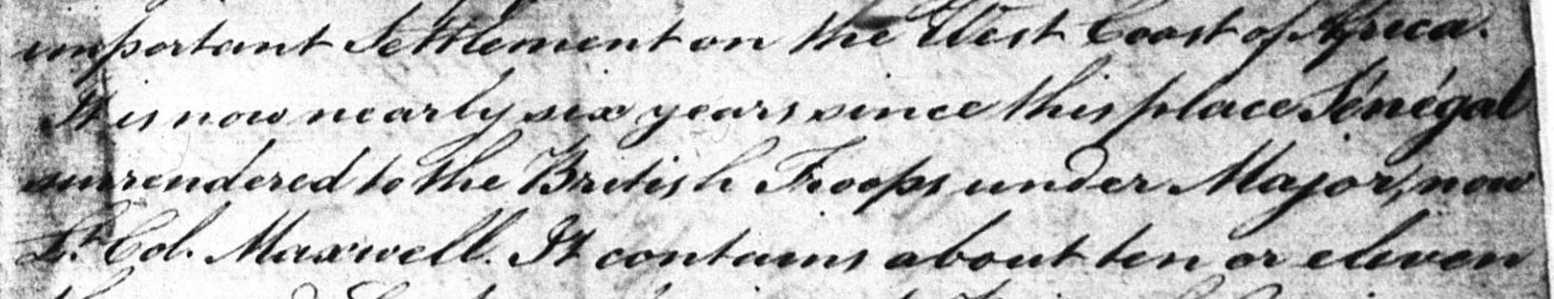 important Settlement on the West Coast of Africa.
It is now nearly six years since this place Sénégal
surrendered to the British Troops under Major, now
Lt. Col. Maxwell. It contains about ten or eleven